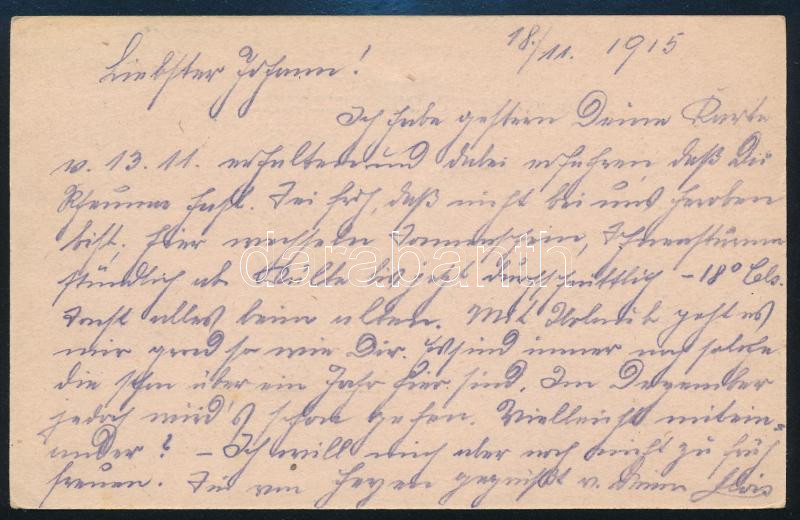 18./11. 1915
Liebster Johann!
Ich habe gestern Deine Karte
v. 13.11. erhalten und dabei erfahren, daß Du
Rheuma hast. Sei froh, daß nicht bei uns heroben
bist, hier wechseln Sonnenschein, Schneestürme
stündlich ab. Kälte bis jetzt durchschnittlich -18° Cels.
Sonst alles beim alten. Mit Urlaub geht es
mir grad so wie Dir. Es sind immer noch solche
die schon über ein Jahr hier sind. Im Dezember
jedoch wird's schon gehen. Vielleicht mitein=
ander? - Ich will mich aber noch nicht zu früh
freuen. Sei von Herzen gegrüßt v. Deinem Alois
darabanth